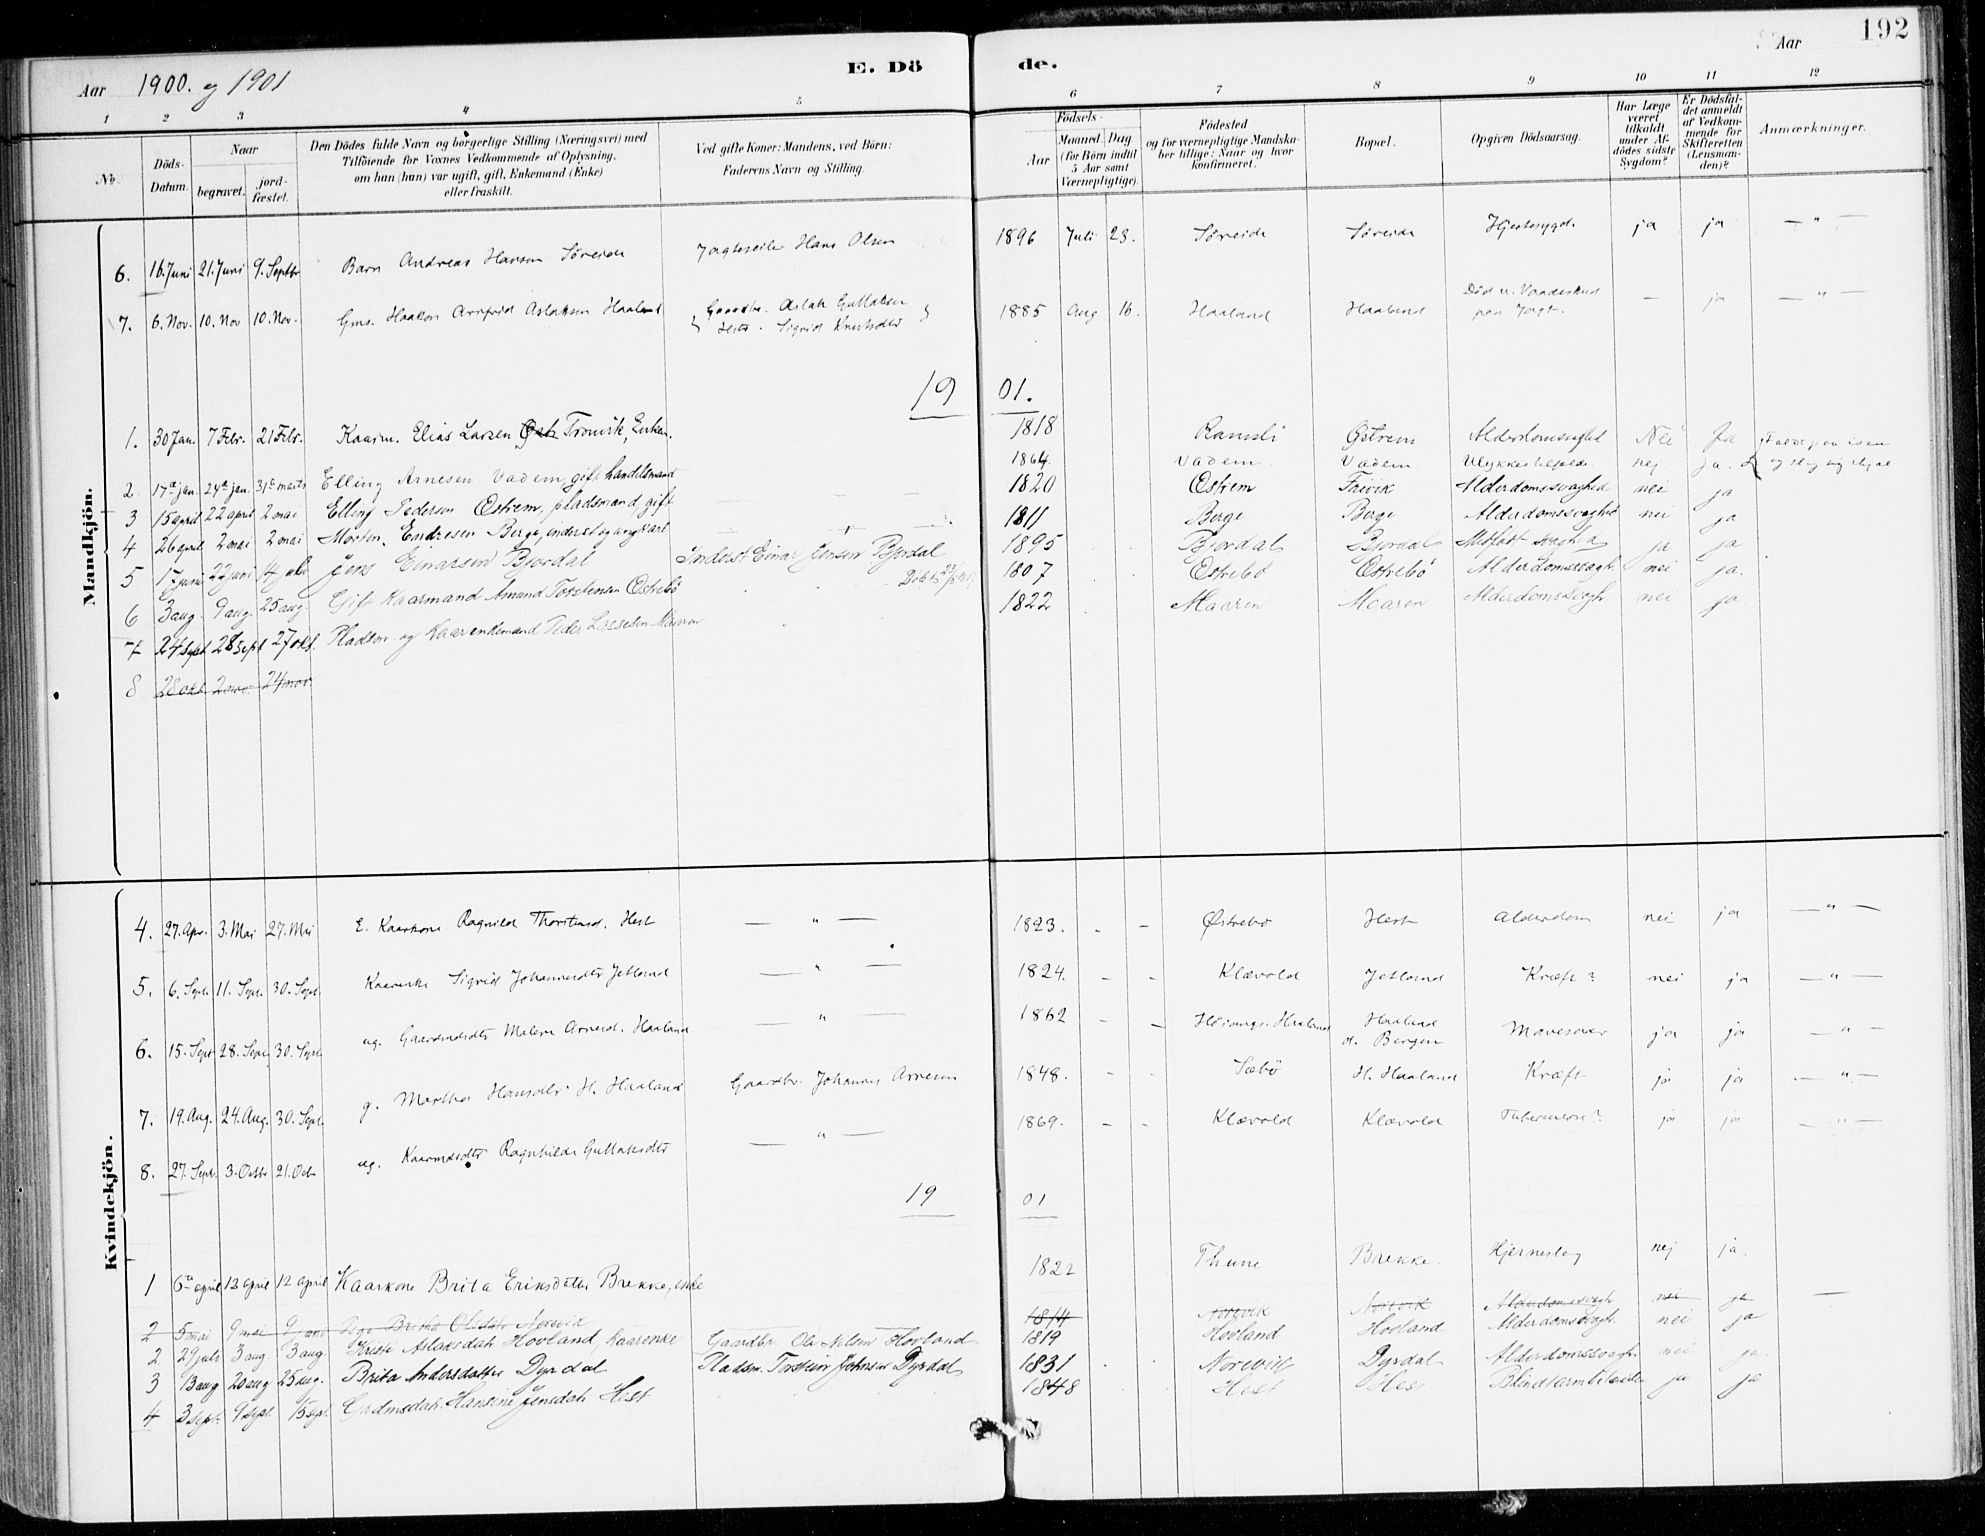 192
Aar 1900. og 1901
E. Dö de.
Aar
1 2 3 4 5 6 7 8 9 10 11 12
No.
Döds-Datum.
Naar
begravet.
jord-fæstet.
Den Dödes fulde Navn og borgerlige Stilling (Næringsvei) med
Tilföiende for Voxnes Vedkommende af Oplysning,
om han (hun) var ugift, gift, Enkemand (Enke)
eller fraskilt.
Ved gifte Koner: Mandens, ved Börn:
Faderens Navn og Stilling.
Födsels-
Aar
Maaned. Dag
(for Börn indtil
5 Aar samt
Værnepligtige).
Födested
og for værnepligtige Mandska-
ber tillige: Naar og hvor
konfirmeret.
Bopæl.
Opgiven Dödsaarsag.
Har Læge
været
tilkaldt
under Af-
dödes sidste
Sygdom?
Er Dödsfal-
det anmeldt
af Vedkom-
mende for
Skifteretten
(Lensman-
den)?
Anmærkninger.
Mandkjön.
6. 16. Juni 21. Juni 9. Septbr Barn Andreas Hansen Søreide Jagteseiler Hans Olsen 1896 Juli 23. Søreide Søreide Hjertesygd. ja ja — " —
7. 6. Nov. 10. Nov 10. Nov. Gms. Haakon Arnfred Aslaksen Haaland Gaardbr. Aslak Guttaksen 1885 Aug 16. Haaland Haaland Død v. Vaadeskud — ja — " —
Sigrid Knutsdtr paa Jagt.
1901.
1. 30 Jan. 7 Febr. 21 Febr. Kaarm. Elias Larsen Tronvik, Enkem. 1818 Ramsli Østrem Alderdomssvaghed Nei Ja
2. 17de jan. 24de jan. 31te marts Elling Arnesen Vadem, gift handelsmand 1864. Vadem Vadem Ulykkestilfælde nej ja.
3 15 april 22 april 2 mai Elling Pedersen Østrem, pladsmand, gift — — — 1820 Østrem Alderdomssvaghed nei ja
4 26 april 2 mai 2 mai Morten Endresen Berge, inderst og ungkarl 1811 Berge Berge Alderdomssvaghed nei ja
5 17 juni 22 juni 4 juli Jens Einarsen Bjordal Inderst Einar Jensen Bjordal 1895 Bjordal Bjordal Medfødt svaghed ja ja
6 3 aug. 9 aug. 25 aug. Gift Kaarmand Amund Torstensen Østrebø 1807 Østrebø Østrebø Alderdomssvagh. nei ja.
7 24 sept 28 sept 27 okt. Pladsm. og Kaarenkemand Peder Lassesen Maaren 1822 Maaren Maaren Alderdomssvagh nei ja
8 28 okt 2 nov. 24 nov.
Kvindekjön.
4. 27. Apr. 3. Mai 27. Mai E. Kaarkone Ragnild Thorstensd. Hest — " — 1823. - - Østrebø Hest Alderdom nei ja — " —
5. 6. Sept. 11. Sept. 30. Sept. Kaarenke Sigrid Johannesdtr Jetland — " — 1824. - - Klævold Jetland Kræft? nei ja — " —
6. 15. Sept 28. Sept 30. Sept. ug. Gaardmdsdtr Malene Arnesd. Haaland — " — 1862 - - Haaland Haaland Mavesaar ja ja — " —
d. Bergen
7. 19. Aug. 24. Aug. 30. Sept. g. Martha Hansdtr H. Haaland Gaardbr. Johannes Arnesen 1848. - - Sæbø H. Haaland Kræft ja ja — " —
8. 27. Sept. 3. Octbr 21. Octr ug. Kaarmdsdtr Ragnhilde Guttaksdtr — " — 1869. - - Klævold Klævold Tuberculose? ja ja — " —
1901
1 6te april 12 april 12 april Kaarkone Brita Eriksdatter Brekke, enke 1822 Thune Brekke Hjerneslag nej ja.
2 5 mai 9 mai 9 juni Britha Olsdatr Norevik 1814 Norevik Norevik Alderdomssvagh nei ja —
2 29 juli 3 aug 3 aug. Aslaksdatr Hovland, kaarenke Gaardbr. Ole Nilsen Hovland 1819 Hovland Hovland Alderdomssvagh. nei ja
3 13 aug 20 aug 25 aug. Brita Andersdatter Dyrdal Pladsm. Torstein Johnsen Dyrdal 1831 Norevik Dyrdal Alderdomssvagh. nei ja
4 3 sept. 9 sept. 15 sept. Grdmsdatr. Hansine Jensdatr. Hest 1848 Hest Hest ja ja